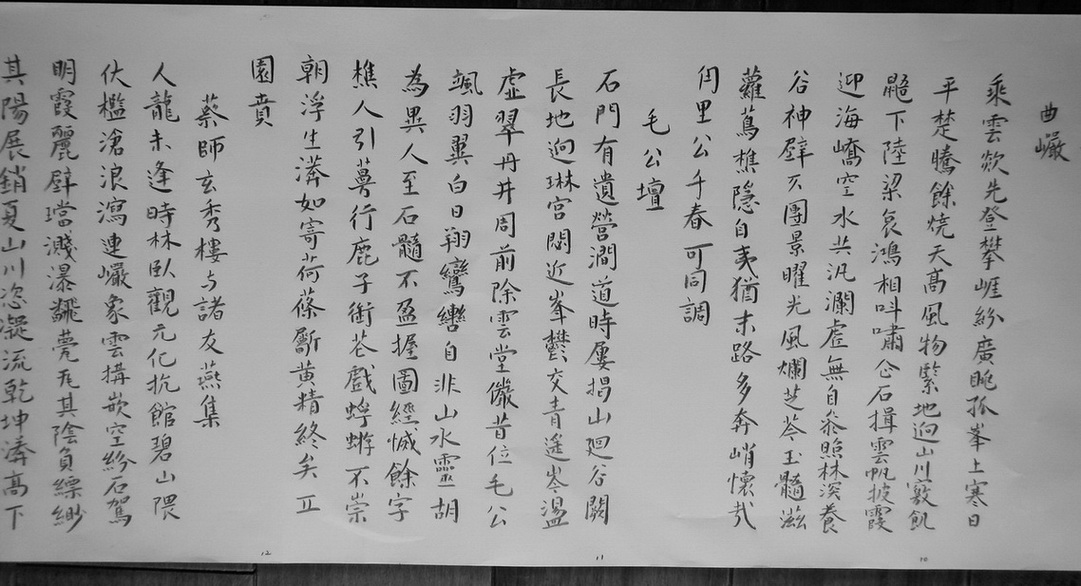 曲巖
乘雲歘先登攀崖紛廣眺孤峯上寒日
平楚騰餘燒天高風物緊地迥山川竅飢
鼯下陸梁哀鴻相呌嘯企石揖雲帆披霞
迎海嶠空水共汎瀾虛無自參照林深養
谷神壁仄團景曜光風爛芝苓玉髓滋
蘿蔦樵隱自夷猶末路多奔峭懷哉
甪里公千春可同調
毛公壇
石門有遺營澗道時屢揭山廻谷闕
長地迥琳宮閟近峯欝交青遙岑盪
虛翠丹井周前除雲堂儼昔位毛公
颯羽翼白日翔鸞轡自非山水靈胡
為異人至石髓不盈握圖經悈餘字
樵人引蕚行鹿子銜芲戲蜉蝣不崇
朝浮生濟如寄荷蓧斸黄精終矣丘
園賁
蔡師玄秀樓与諸友燕集
人龍未逢時林臥觀元化抗館碧山隈
伏檻滄浪瀉連巖象雲構嵌空紛石駕
明霞麗壁璫濺瀑飜甍瓦其陰負縹緲
其陽展銷夏山川恣凝流乾坤濟高下
10
11
12